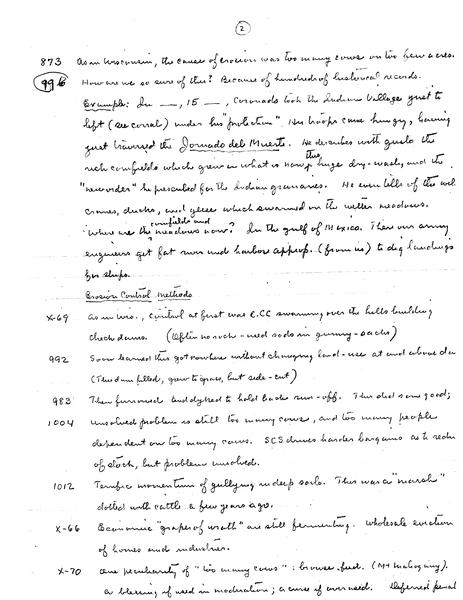 2
873 As in Wisconsin, the cause of erosion was too many cows on too few acres.
99b How are we so sure of this? Because of hundreds of historical records.
Example: In __, 15 __, Coronado took the Indian Village just to
left (see corral) under his "protection". His troops came hungry, having
just traversed the Jornado del Muerto. He describes with gusto the
rich cornfields which grew on what is now this huge dry-wash, and the
"new order" he prescribed for the Indian granaries. He even tells of the wil
cranes, ducks, and geese which swarmed on the wetter meadows.
Where are the cornfields and meadows now? In the gulf of Mexico. There our army
engineers get fat river and harbor approp. (from us) to dig landings
for ships.
Erosion Control Methods
X-69 As in Wis., control at first was CCC swarming over the hills building
check dams. (Often no rock - used sods in gunny-sacks)
992 Some learned this got nowhere without changing land-use at and above da
(This dam filled, grew to grass, but side-cut)
983 Then furrowed and dyked to hold back run-off. This did some good;
1004 Unsolved problem is still too many cows, and too many people
dependent on too many cows. SCS drives harder bargains as to redu
of stock, but problem unsolved.
1012 Terrific momentum of gullying in deep soils. This was a "marsh"
dotted with cattle a few years ago.
X-66 Economic "grapes of wrath" are still fermenting. Wholesale eviction
of homes and industries.
X-70 One peculiarity of "too many cows": browse feed. (Mt Mahogany).
A blessing if used in moderation; a curse if overused. Deferred penal